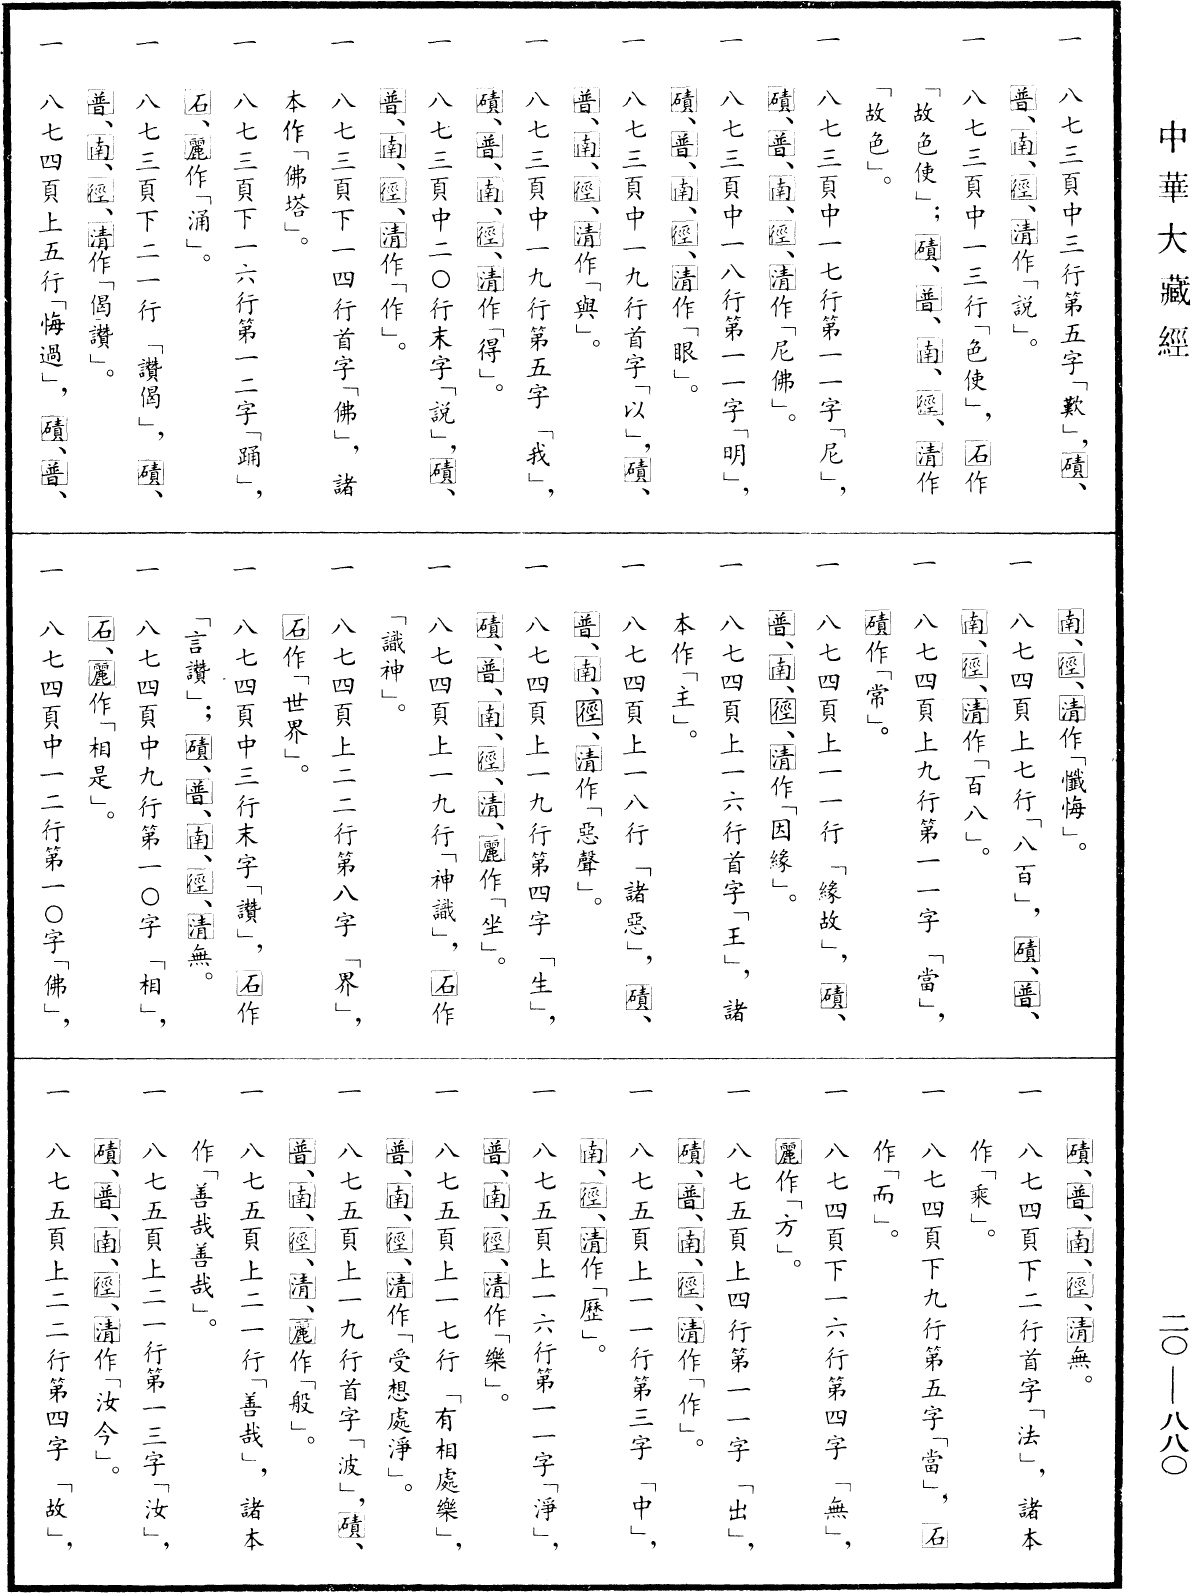 中華大藏經
一　八七三頁中三行第五字「歎」，磧、
普、南、徑、清作「説」。
一　八七三頁中一三行「色使」，石作
「故色使」；磧、普、南、徑、清作
「故色」。
一　八七三頁中一七行第一一字「尼」，
磧、普、南、徑、清作「尼佛」。
一　八七三頁中一八行第一一字「明」，
磧、普、南、徑、清作「眼」。
一　八七三頁中一九行首字「以」，磧、
普、南、徑、清作「與」。
一　八七三頁中一九行第五字「我」，
磧、普、南、徑、清作「得」。
一　八七三頁中二〇行末字「説」，磧、
普、南、徑、清作「作」。
一　八七三頁下一四行首字「佛」，諸
本作「佛塔」。
一　八七三頁下一六行第一二字「踊」，
石、麗作「涌」。
一　八七三頁下二一行「讚偈」，磧、
普、南、徑、清作「偈讚」。
一　八七四頁上五行「悔過」，磧、普、
南、徑、清作「懺悔」。
一　八七四頁上七行「八百」，磧、普、
南、徑、清作「百八」。
一　八七四頁上九行第一一字「當」，
磧作「常」。
一　八七四頁上一一行「緣故」，磧、
普、南、徑、清作「因緣」。
一　八七四頁上一六行首字「王」，諸
本作「主」。
一　八七四頁上一八行「諸惡」，磧、
普、南、徑、清作「惡聲」。
一　八七四頁上一九行第四字「生」，
磧、普、南、徑、清、麗作「坐」。
一　八七四頁上一九行「神識」，石作
「識神」。
一　八七四頁上二二行第八字「界」，
石作「世界」。
一　八七四頁中三行末字「讚」，石作
「言讚」；磧、普、南、徑、清無。
一　八七四頁中九行第一〇字「相」，
石、麗作「相是」。
一　八七四頁中一二行第一〇字「佛」，
磧、普、南、徑、清無。
一　八七四頁下二行首字「法」，諸本
作「乘」。
一　八七四頁下九行第五字「當」，石
作「而」。
一　八七四頁下一六行第四字「無」，
麗作「方」。
一　八七五頁上四行第一一字「出」，
磧、普、南、徑、清作「作」。
一　八七五頁上一一行第三字「中」，
南、徑、清作「歷」。
一　八七五頁上一六行第一一字「淨」，
普、南、徑、清作「樂」。
一　八七五頁上一七行「有相處樂」，
普、南、徑、清作「受想處淨」。
一　八七五頁上一九行首字「波」，磧、
普、南、徑、清、麗作「般」。
一　八七五頁上二一行「善哉」，諸本
作「善哉善哉」。
一　八七五頁上二一行第一三字「汝」，
磧、普、南、徑、清作「汝今」。
一　八七五頁上二二行第四字「故」，
二〇—八八〇